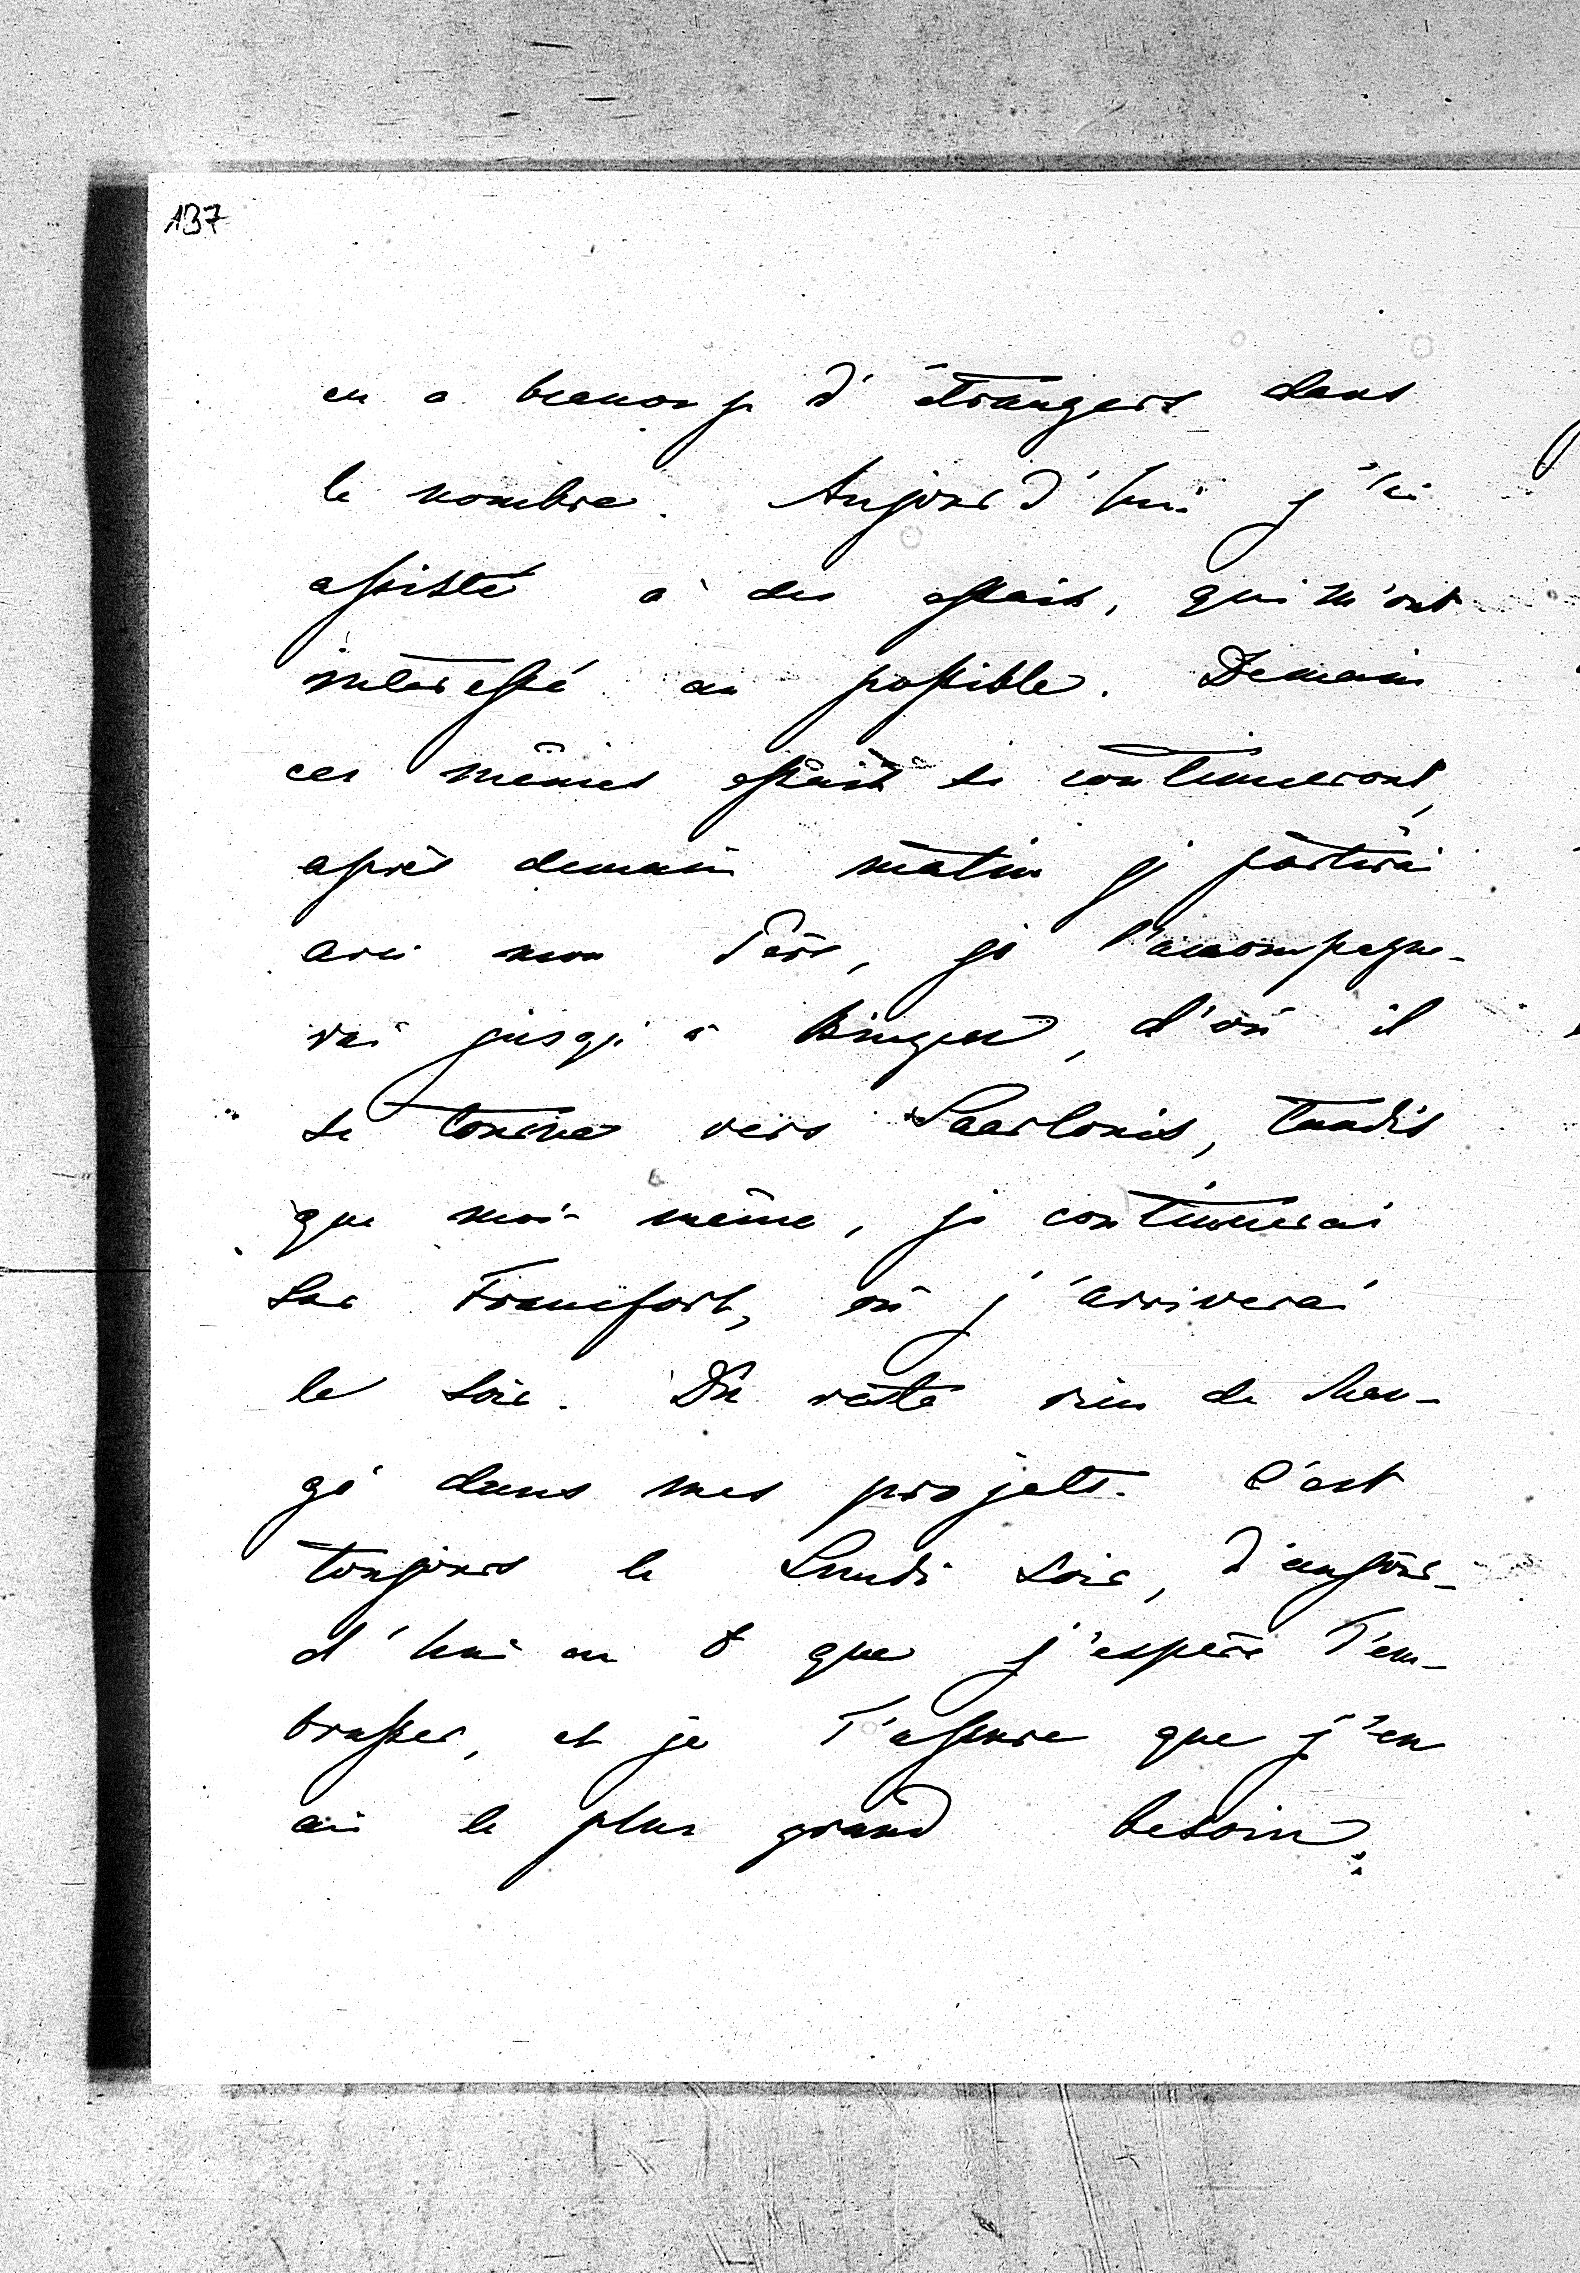 137
en a beaucoup d'étrangers dans
le nombre. Aujourd'hui j'ai
assisté à des essais, qui m'ont
interessé au possible. Demain
ces mêmes essais se continueront,
après demain matin je partirai
avec mon Père, je l'accompagne-
rai jusqu'à Bingen, d'où il
se tourne vers Saarlouis, tandis
que moi-même, je continuerai
sur Francfort, où j'arriverai
le soir. Du reste rien de chan-
gé dans mes projets. C'est
toujours le Lundi soir, d'aujour-
d'hui en 8 que j'espère T'em-
brasser, et je T'assure que j'en
ai le plus grand besoin.